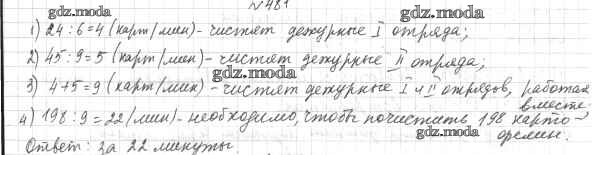 №481
gdz.moda gdz.moda
1) 24 : 6 = 4 (карт/мин) - чистят дежурные I отряда;
2) 45 : 9 = 5 (карт/мин) - чистят дежурные II отряда;
gdz.moda
3) 4+5=9 (карт/мин) - чистят дежурные I и II отрядов, работая
вместе.
4) 198 : 9 = 22 (мин) - необходимо, чтобы почистить 198 карто-
gdz.moda фелин.
Ответ: за 22 минуты.